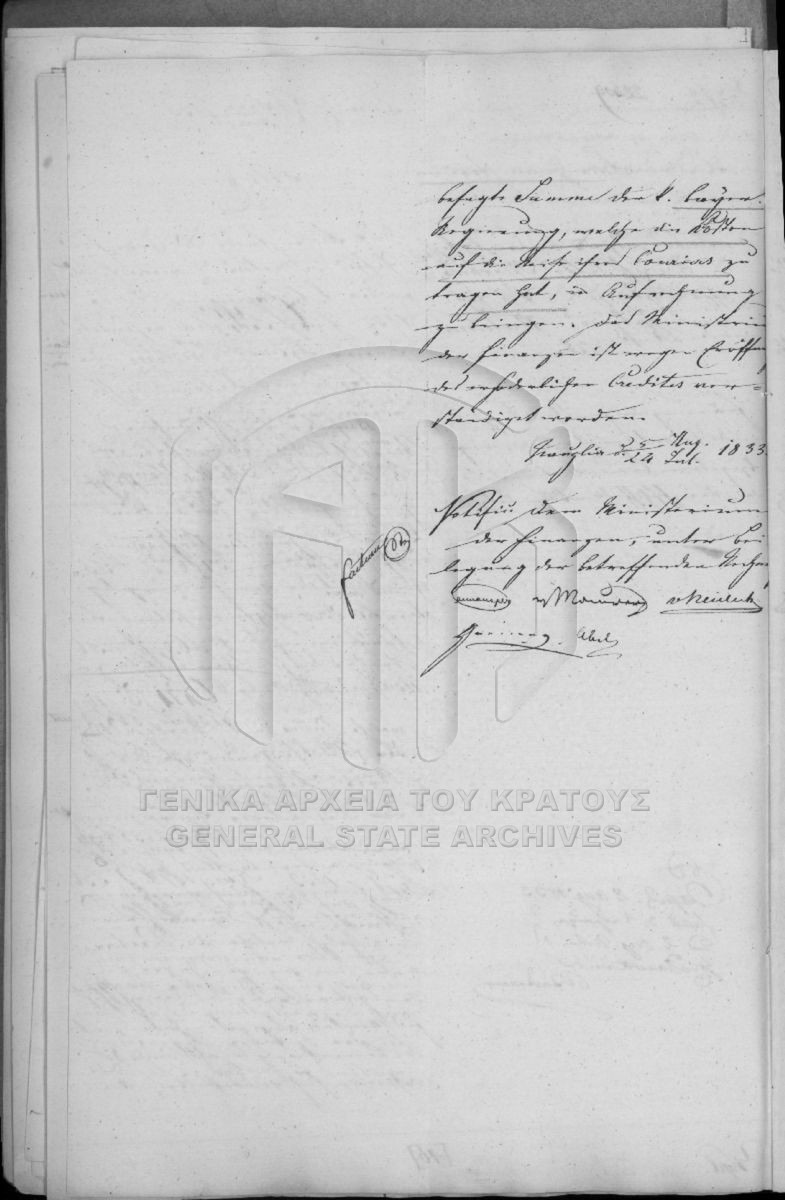 besagte Summe der k. bayer.
Regierung, welche die Kosten
auf die Reise ihres Couriers zu
tragen hat, in Aufrechnung
zu bringen. Das Ministeriu
der Finanzen ist wegen Eröffnu
des erforderlichen Credites ver=
ständiget worden.
Nauplia d. 5 Aug. / 24 Jul. 1833
Notifiu dem Ministerium
der Finanzen, unter Bei
legung der betreffenden Rechnu
Armansperg vMaurer vHeideck
Greiner. Abel
ΓΕΝΙΚΑ ΑΡΧΕΙΑ ΤΟΥ ΚΡΑΤΟΥΣ
GENERAL STATE ARCHIVES